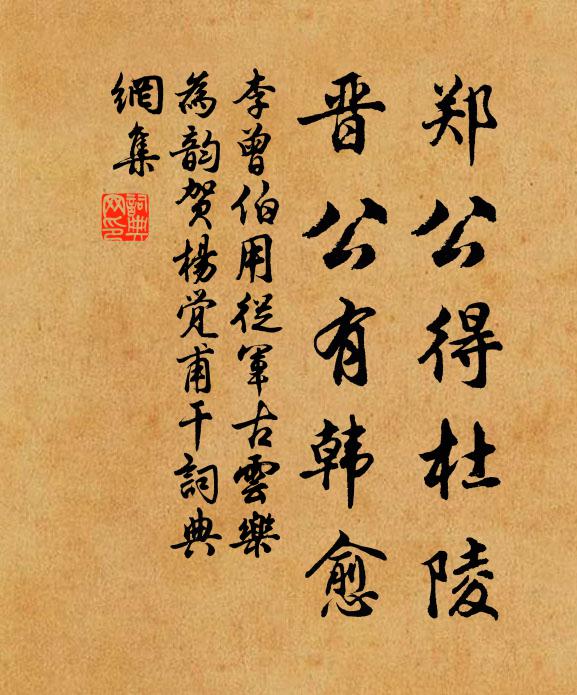 郑公得杜陵
晋公有韩愈
李曾伯用從軍古雲樂
為韵贺楊覚甫干詞典
網集
詞典
网印